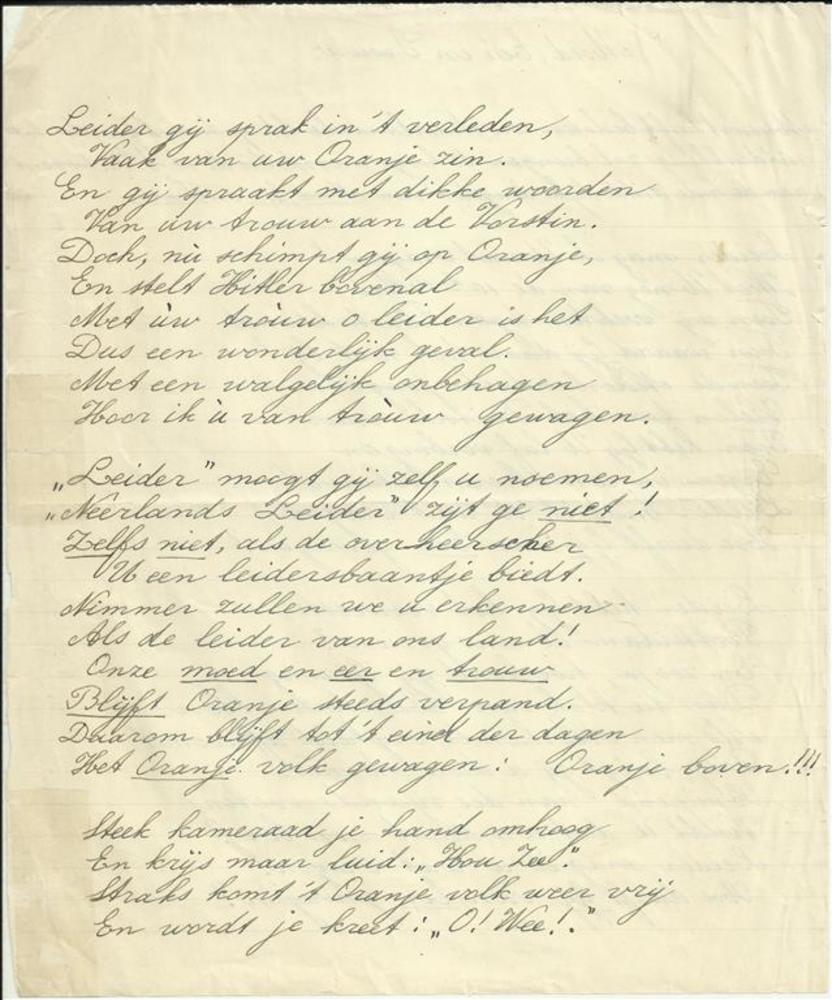 Leider gij sprak in 't verleden,
Vaak van uw Oranje zin.
En gij spraakt met dikke woorden
Van uw trouw aan de Vorstin.
Doch, nù schimpt gij op Oranje,
En stelt Hitler bovenal
Met ùw tròuw o leider is het
Dus een wonderlijk geval.
Met een walgelijk onbehagen
Hoor ik ù van tròuw gewagen.
„Leider" moogt gij zelf u noemen,
„Neêrlands Leider" zijt ge niet!
Zelfs niet, als de overheerscher
U een leidersbaantje biedt.
Nimmer zullen we u erkennen
Als de leider van ons land!
Onze moed en eer en trouw
Blijft Oranje steeds verpand.
Daarom blijft tot 't eind der dagen
Het Oranje volk gewagen: Oranje boven!!!
Steek kameraad je hand omhoog
En krijs maar luid: „Hou Zee".
Straks komt 't Oranje volk weer vrij
En wordt je kreet: „O! Wee!."